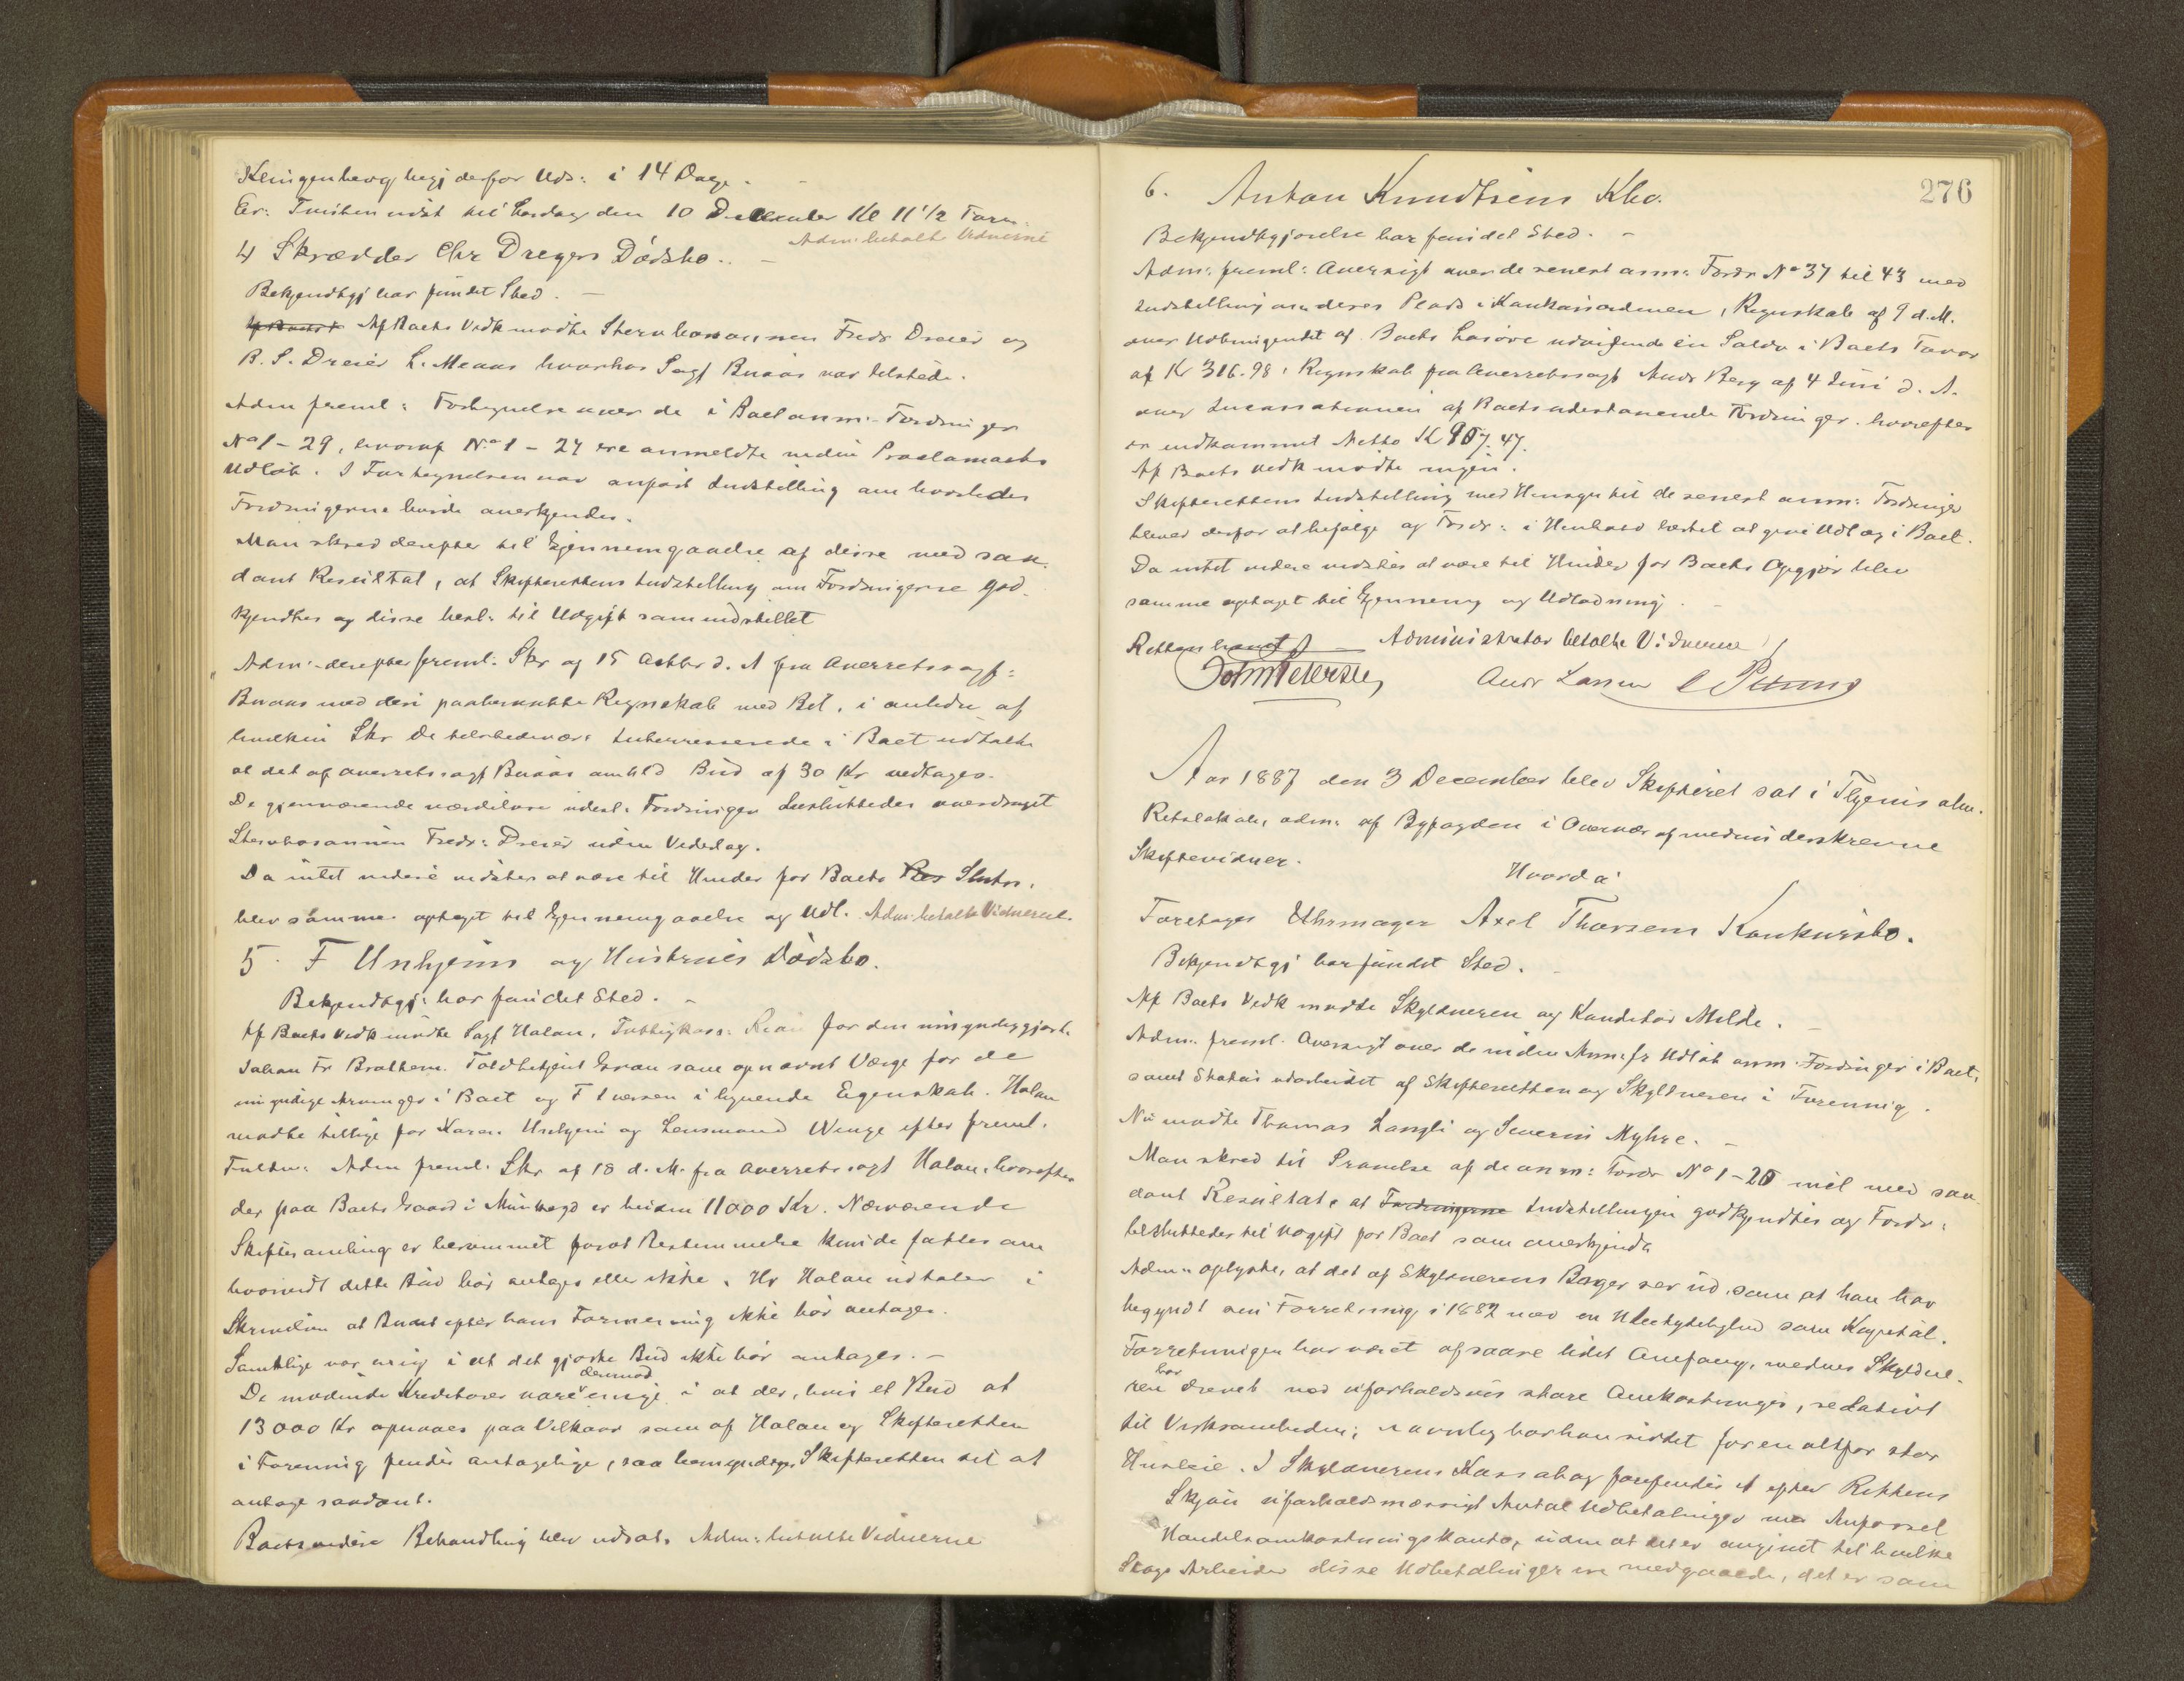 Klingenberg begj derfor Uds: i 14 Dage. -
Er: Tvisten udsat til Lørdag den 10 December Kl 11 1/2 Form.
Adm: betalte Vidnerne
4 Skrædder Chr Dreyers Dødsbo. -
Bekjendtgj har fundet Sted. -
Af Boets Vedk mødte Stervbomannen Fredr Dreier og
B. S. Dreier hvorhos Sagf Buaas var tilstede.
Adm freml: Fortegnelse over de i Boet anm: Fordringer
No 1 - 29, hvoraf No 1 - 24 ere anmeldte inden Proclamaets
Udløb. I Fortegnelsen var anført Indstilling om hvorledes
Fordringerne burde anerkjendes.
Man skred derefter til Gjennemgaaelse af disse med saa-
dant Resultat, at Skifterettens Indstilling om Fordringerne god-
kjendtes og disse besl: til Udgift som indstillet
Adm: derefter freml: Skr af 15 Octbr d. A fra Overretssagf:
Buaas med deri paaberaabte Regnskab med Bil. i anledn af
hvilken Skr de tilstedevær: Interesserede i Boet udtalte
at det af Overretssagf Buaas anmeldte Bud af 30 Kr vedtages.
De gjenværende værdiløse udest. Fordringer besluttedes overdraget
Stervbomannen Fredr: Dreier uden Vederlag.
Da intet videre vidstes at være til Hinder for Boets Slutn:
blev samme optaget til Gjennemgaaelse og Udl. Adm betalte Vidnerne.
5. F Unhjems og Hustrues Dødsbo.
Bekjendtgj: har fundet Sted. -
Af Boets Vedk mødte Sagf Holan, Fattigkass: for den umyndiggjorte
Johan Fr Toldbetjent Gran som opnævnt Værge for de
umyndige Arvinger i Boet og F Iversen i lignende Egenskab. Holan
mødte tillige for Karen Unhjem og Lensmand Wenge efter freml.
Fuldm: Adm freml: Skr af 18 d. M. fra Overretssagf Holan, hvorefter
der paa Boets Gaard i er buden 11000 Kr. Nærværende
Skiftesamling er berammet forat Bestemmelse kunde fattes om
hvorvidt dette Bud bør antages eller ikke. Hr Holan udtaler i
Skrivelsen at Budet efter hans Formening ikke bør antages.
Samtlige var enig i at det gjorte Bud ikke bør antages. -
De mødende Kreditorer vare derimod enige i at der, hvis et Bud af
13000 Kr opnaaes paa Vilkaar som af Holan og Skifteretten
i Forening findes antagelige, saa bemyndiges Skifteretten til at
antage saadant.
Boets videre Behandling blev udsat. Adm: betalte Vidnerne
276
6. Anton Knudtsens Kbo.
Bekjendtgjørelse har fundet Sted. -
Adm: freml: Oversigt over de senest anm: Fordr No 37 til 43 med
Indstilling om deres Plads i Konkursordenen, Regnskab af 9 d. M.
over Udbringendet af Boets Løsøre udvisende en Saldo i Boets Favør
af Kr 316.98, Regnskab fra Overretssagf Andr Berg af 4 Juni d. A.
over Incassationen af Boets udestaaende Fordringer, hvorefter
er indkommet Netto K 907.47.
Af Boets Vedk mødte ingen.
Skifterettens Indstilling med Hensyn til de senest anm: Fordringer
blev derfor at befølge og Fordr: i Henhold hertil at give Udlæg i Boet.
Da intet videre vidstes at være til Hinder for Boets Opgjør blev
samme optaget til Gjennemg og Udlodning. -
Retten hævet - Administrator betalte Vidnerne
Joh Petersen Andr Larsen
Aar 1887 den 3 December blev Skifteret sat i Thjems alm.
Retslokale, adm. af Byfogden i Overvær af medunderskrevne
Skiftevidner.
Hvorda
Foretoges Uhrmager Axel Thorsens Konkursbo.
Bekjendtgj har fundet Sted. -
Af Boets Vedk mødte Skyldneren og Konditor Milde. -
Adm. freml. Oversigt over de inden Anm.fr Udløb anm. Fordringer i Boet,
samt Status udarbeidet af Skifteretten og Skyldneren i Forening.
Nu mødte Thomas Langli og Severin Myhre. -
Man skred til Prøvelse af de anm: Fordr No 1 - 20 incl med saa-
dant Resultat, at Fordringerne Indstillingen godkjendtes og Fordr:
besluttedes til Udgift for Boet som anerkjendt.
Adm: oplyste, at det af Skyldnerens Bøger ser ud som at han har
begyndt sin Forretning i 1882 med en Ubetydelighed som Kapital.
Forretningen har været af saare lidet Omfang, medens Skyldne-
ren har drevet med uforholdsvis store Omkostninger, relativt
til Virksomheden; navnlig har han siddet for en altfor stor
Husleie. I Skyldnerens Kassabog forefindes et efter Rettens
Skjøn uforholdsmæssigt Antal Udbetalinger med Anførsel
Handelsomkostningskonto, uden at det er angivet til hvilke
Slags Arbeider disse Udbetalinger ere medgaaede, det er som